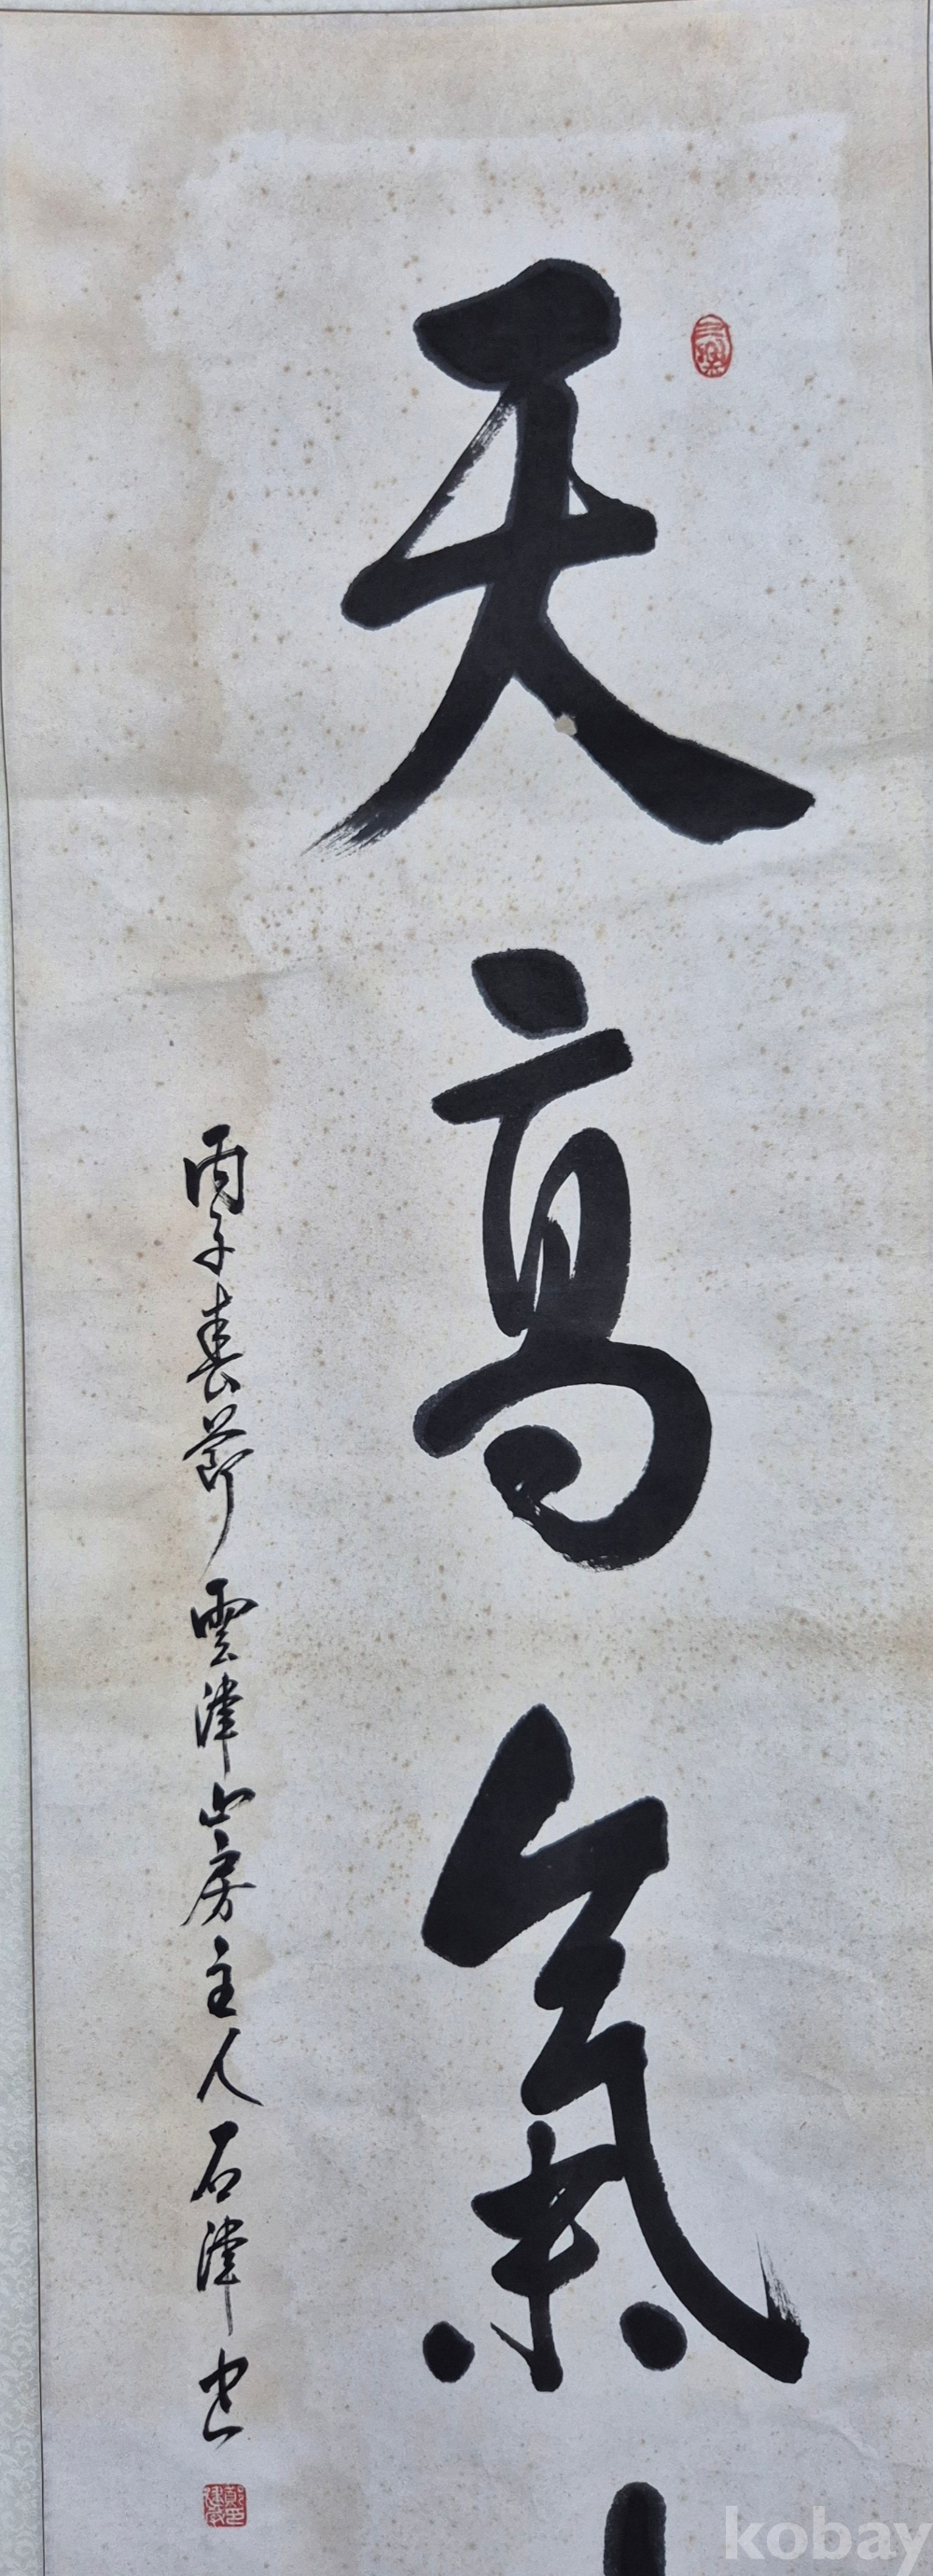 天高氣
丙子春節雲津山房主人石津書
kobay